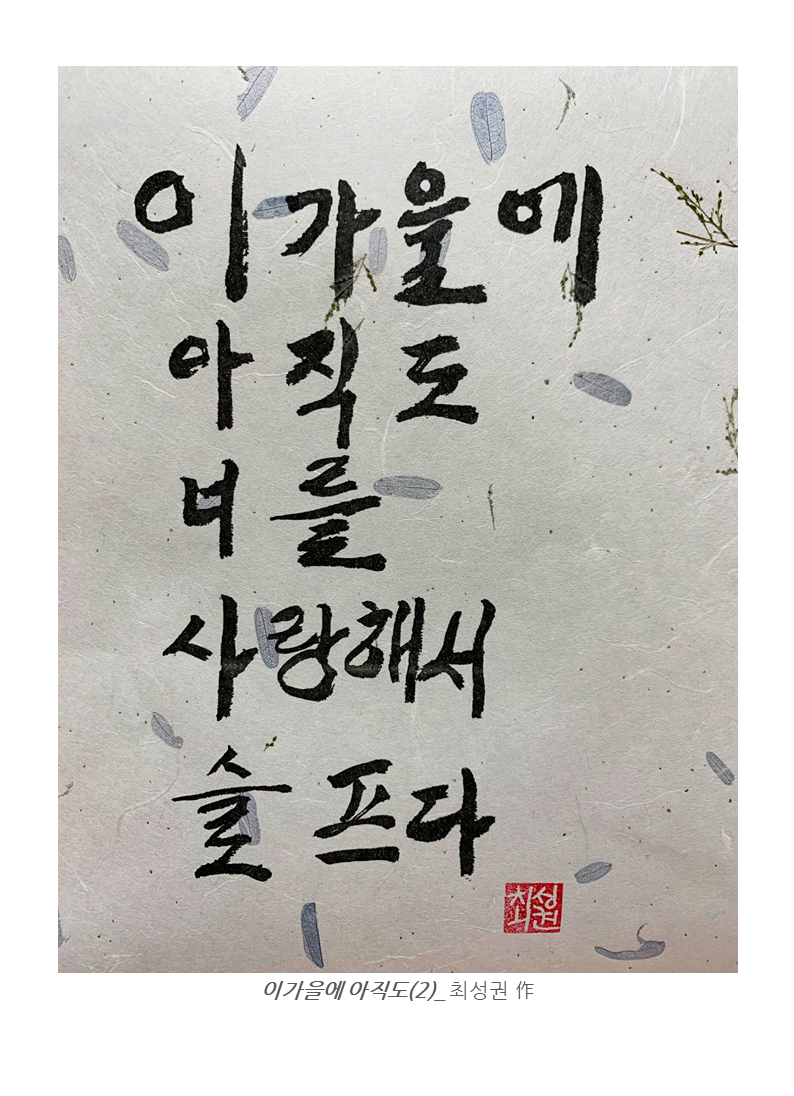 이가을에
아직도
너를
사랑해서
슬프다
최성권
이가을에 아직도(2)_ 최성권 作